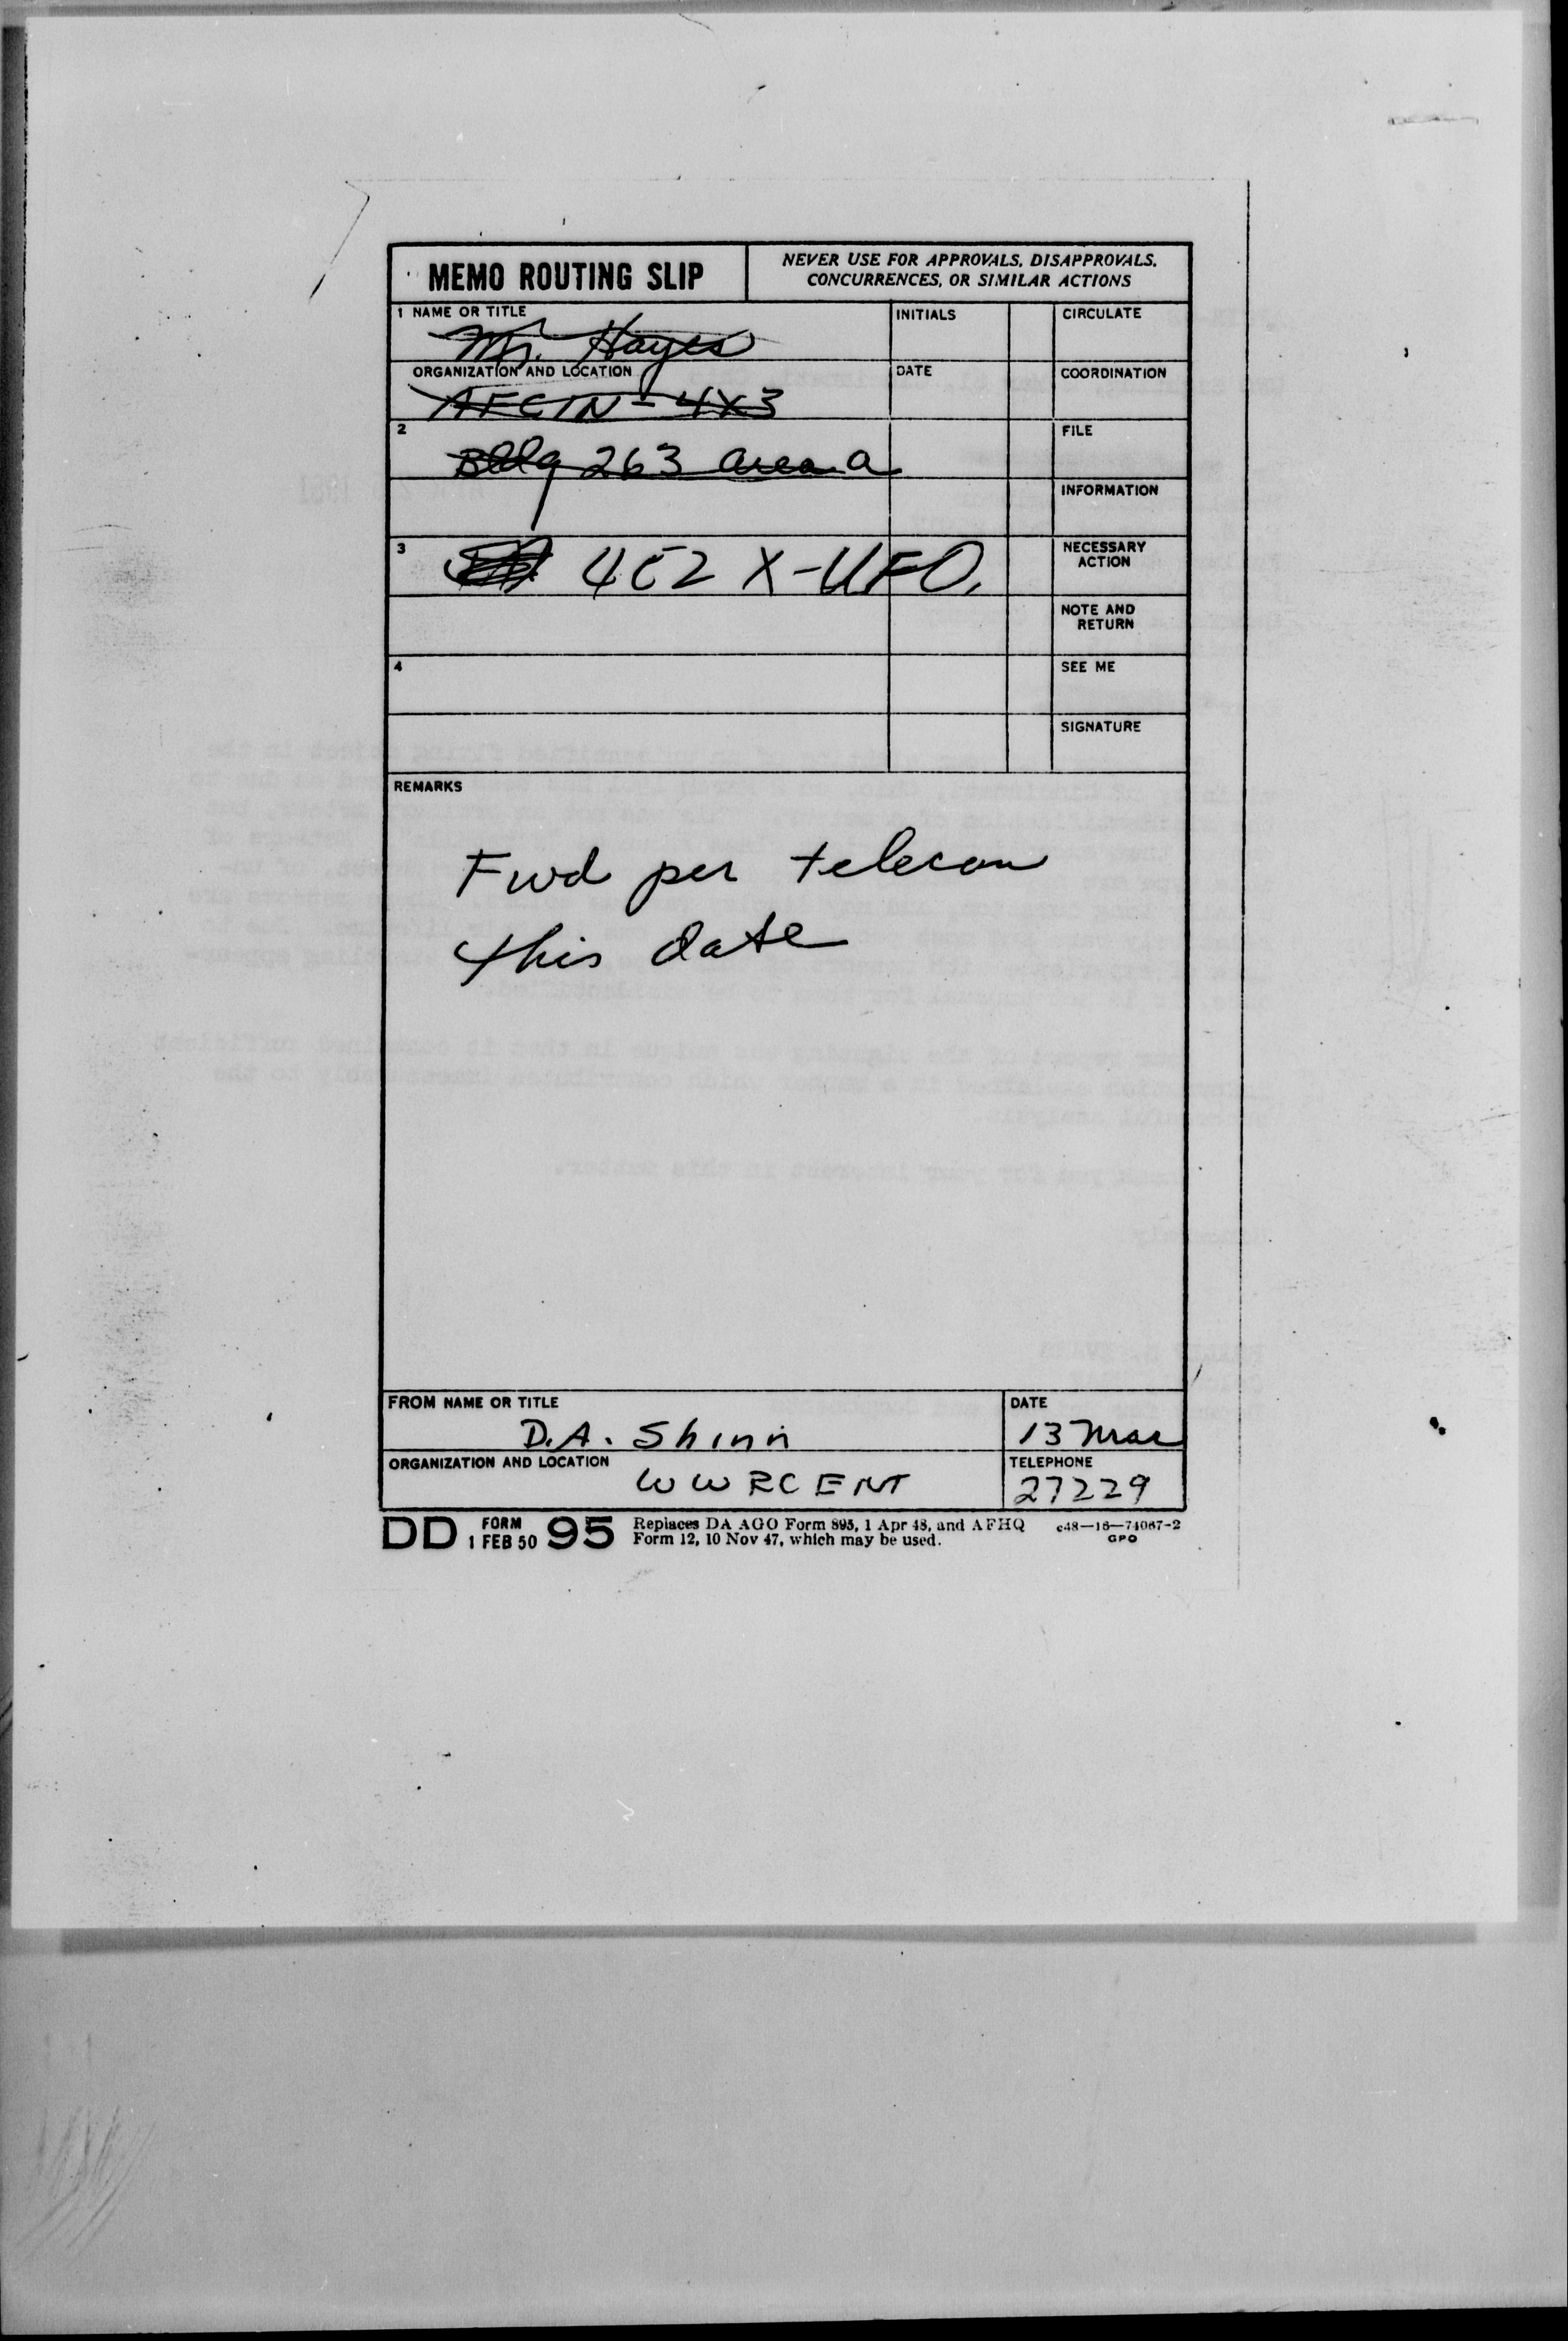 MEMO ROUTING SLIP
NEVER USE FOR APPROVALS, DISAPPROVALS,
CONCURRENCES, OR SIMILAR ACTIONS
1 NAME OR TITLE
Mr. Hayes
INITIALS
CIRCULATE
ORGANIZATION AND LOCATION
AFCIN-4X3
DATE
COORDINATION
2
Bldg 263 area a
FILE
INFORMATION
3
4E2 X-UFO,
NECESSARY
ACTION
NOTE AND
RETURN
4
SEE ME
SIGNATURE
REMARKS
Fwd per telecon
this date
FROM NAME OR TITLE
D.A. Shinn
DATE
13 Mar
ORGANIZATION AND LOCATION
WWRCENT
TELEPHONE
27229
DD FORM 1 FEB 50 95
Replaces DA AGO Form 895, 1 Apr 48, and AFHQ
Form 12, 10 Nov 47, which may be used.
c48—16—74087-2
GPO